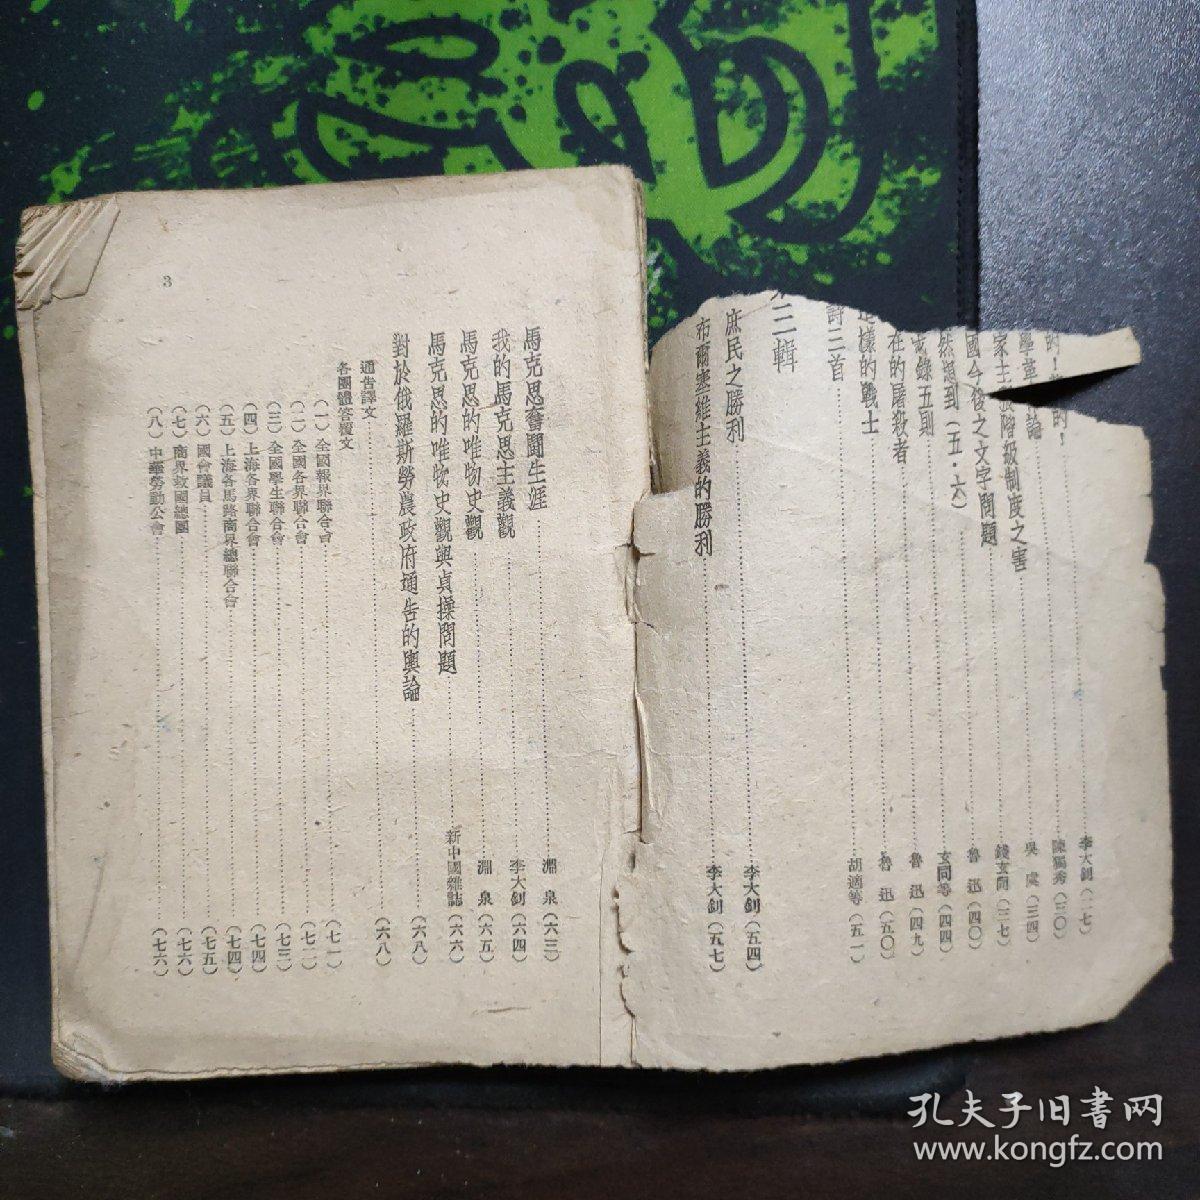 的！……的！……李大釗（二七）
學革……論……陳獨秀（三〇）
家主……階級制度之害……吳　虞（三四）
國今後之文字問題……錢玄同（三七）
然想到（五·六）……魯　迅（四〇）
錄五則……玄同等（四四）
在的屠殺者……魯　迅（四九）
這樣的戰士……魯　迅（五〇）
詩三首……胡適等（五一）
三輯
庶民之勝利……李大釗（五四）
布爾塞維主義的勝利……李大釗（五七）
馬克思奮鬪生涯……淵　泉（六三）
我的馬克思主義觀……李大釗（六四）
馬克思的唯物史觀……淵　泉（六五）
馬克思的唯物史觀與貞操問題……新中國雜誌（六六）
對於俄羅斯勞農政府通告的輿論……（六八）
通告譯文……（六八）
各團體答覆文
（一）全國報界聯合會……（七一）
（二）全國各界聯合會……（七二）
（三）全國學生聯合會……（七三）
（四）上海各界聯合會……（七四）
（五）上海各馬路商界總聯合會……（七四）
（六）國會議員……（七五）
（七）商界救國總團……（七六）
（八）中華勞動公會……（七六）
3
孔夫子旧書网
www.kongfz.com